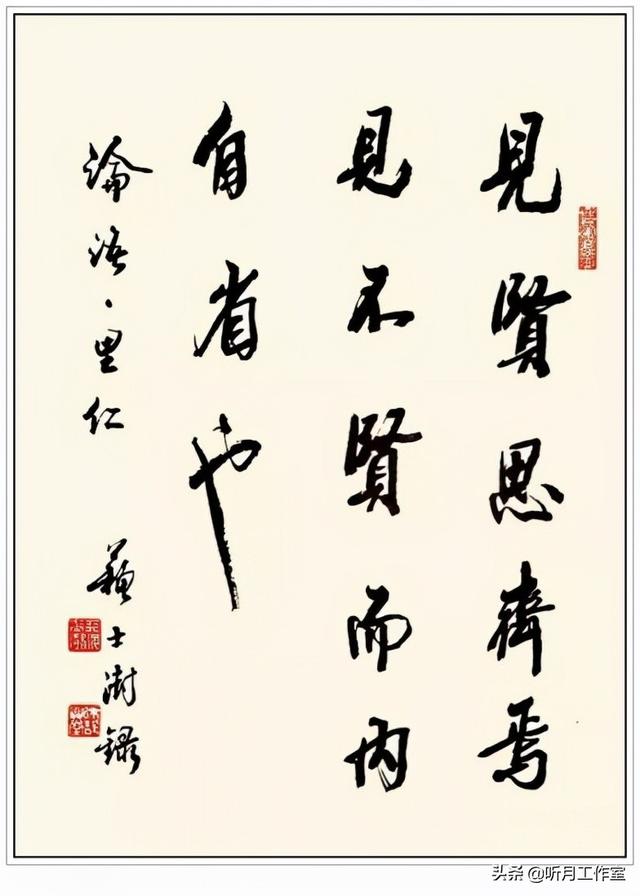 見賢思齊焉
見不賢而內
自省也
論語·里仁
蘇士澍錄
头条 @听月工作室